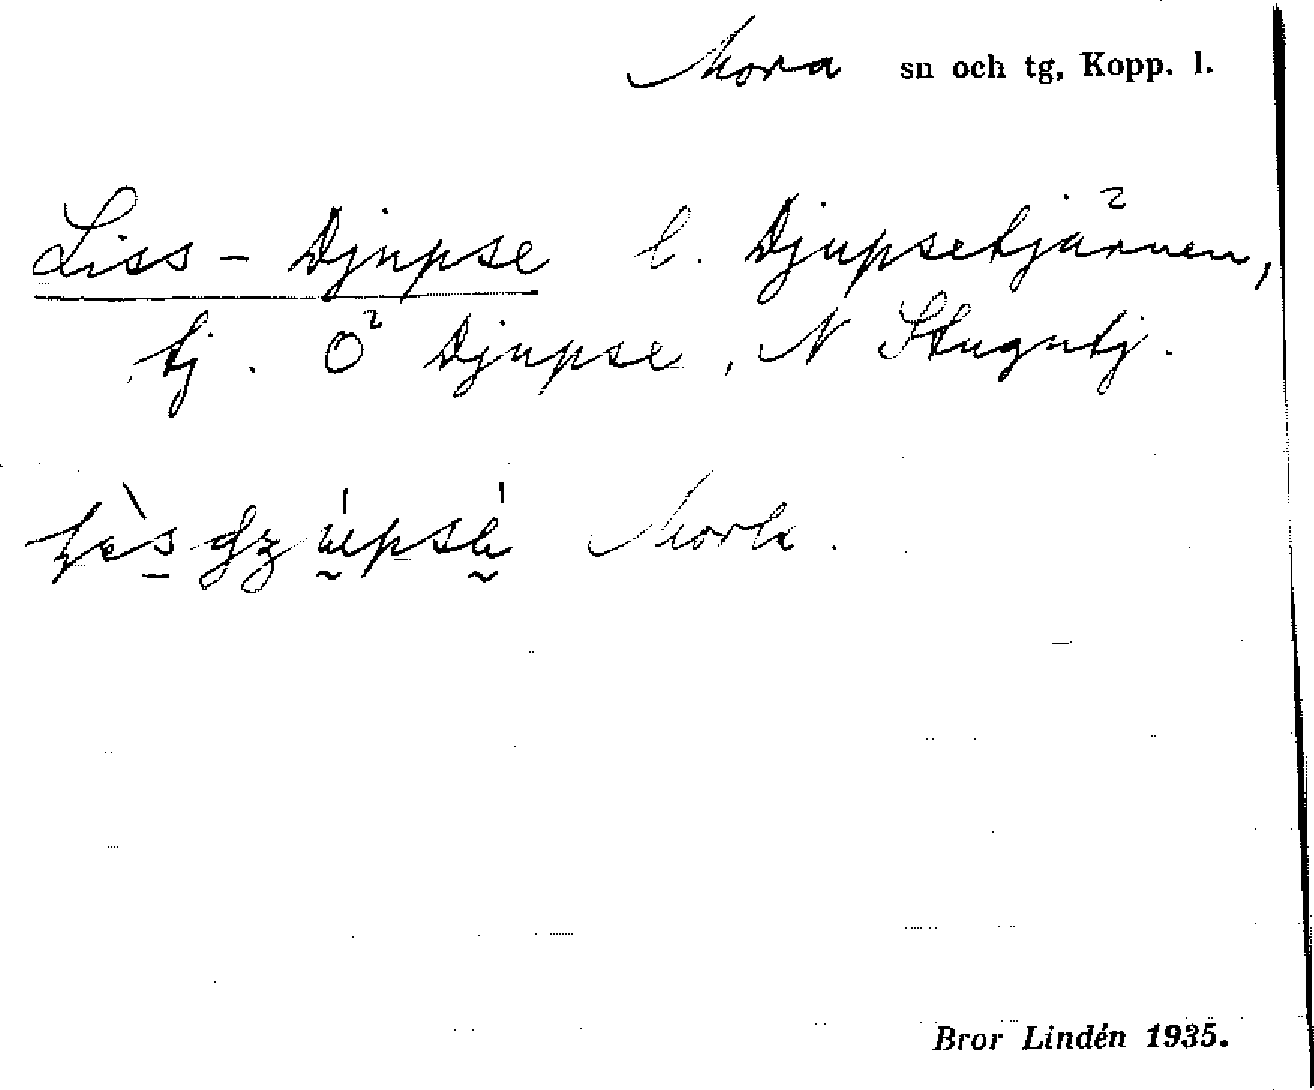 Mora sn och tg, Kopp. l.
Liss-Djupse l. Djupsetjärnen,
tj. Ö² Djupse, N Stugutj.
Mork.
Bror Lindén 1935.